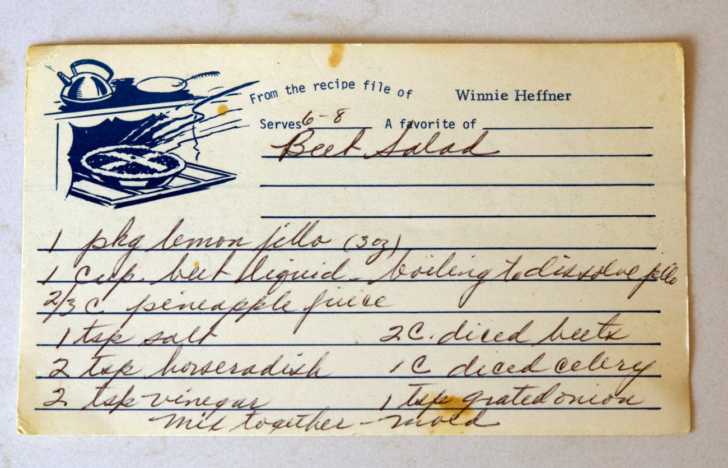 From the recipe file of Winnie Heffner
Serves 6-8 A favorite of
Beet Salad
1 pkg lemon jello (3oz)
1 cup beet liquid - boiling to dissolve jello
2/3 c pineapple juice
1 tsp salt 2 C. diced beets
2 tsp horseradish 1 C diced celery
2 tsp vinegar 1 tsp grated onion
Mix together - mold